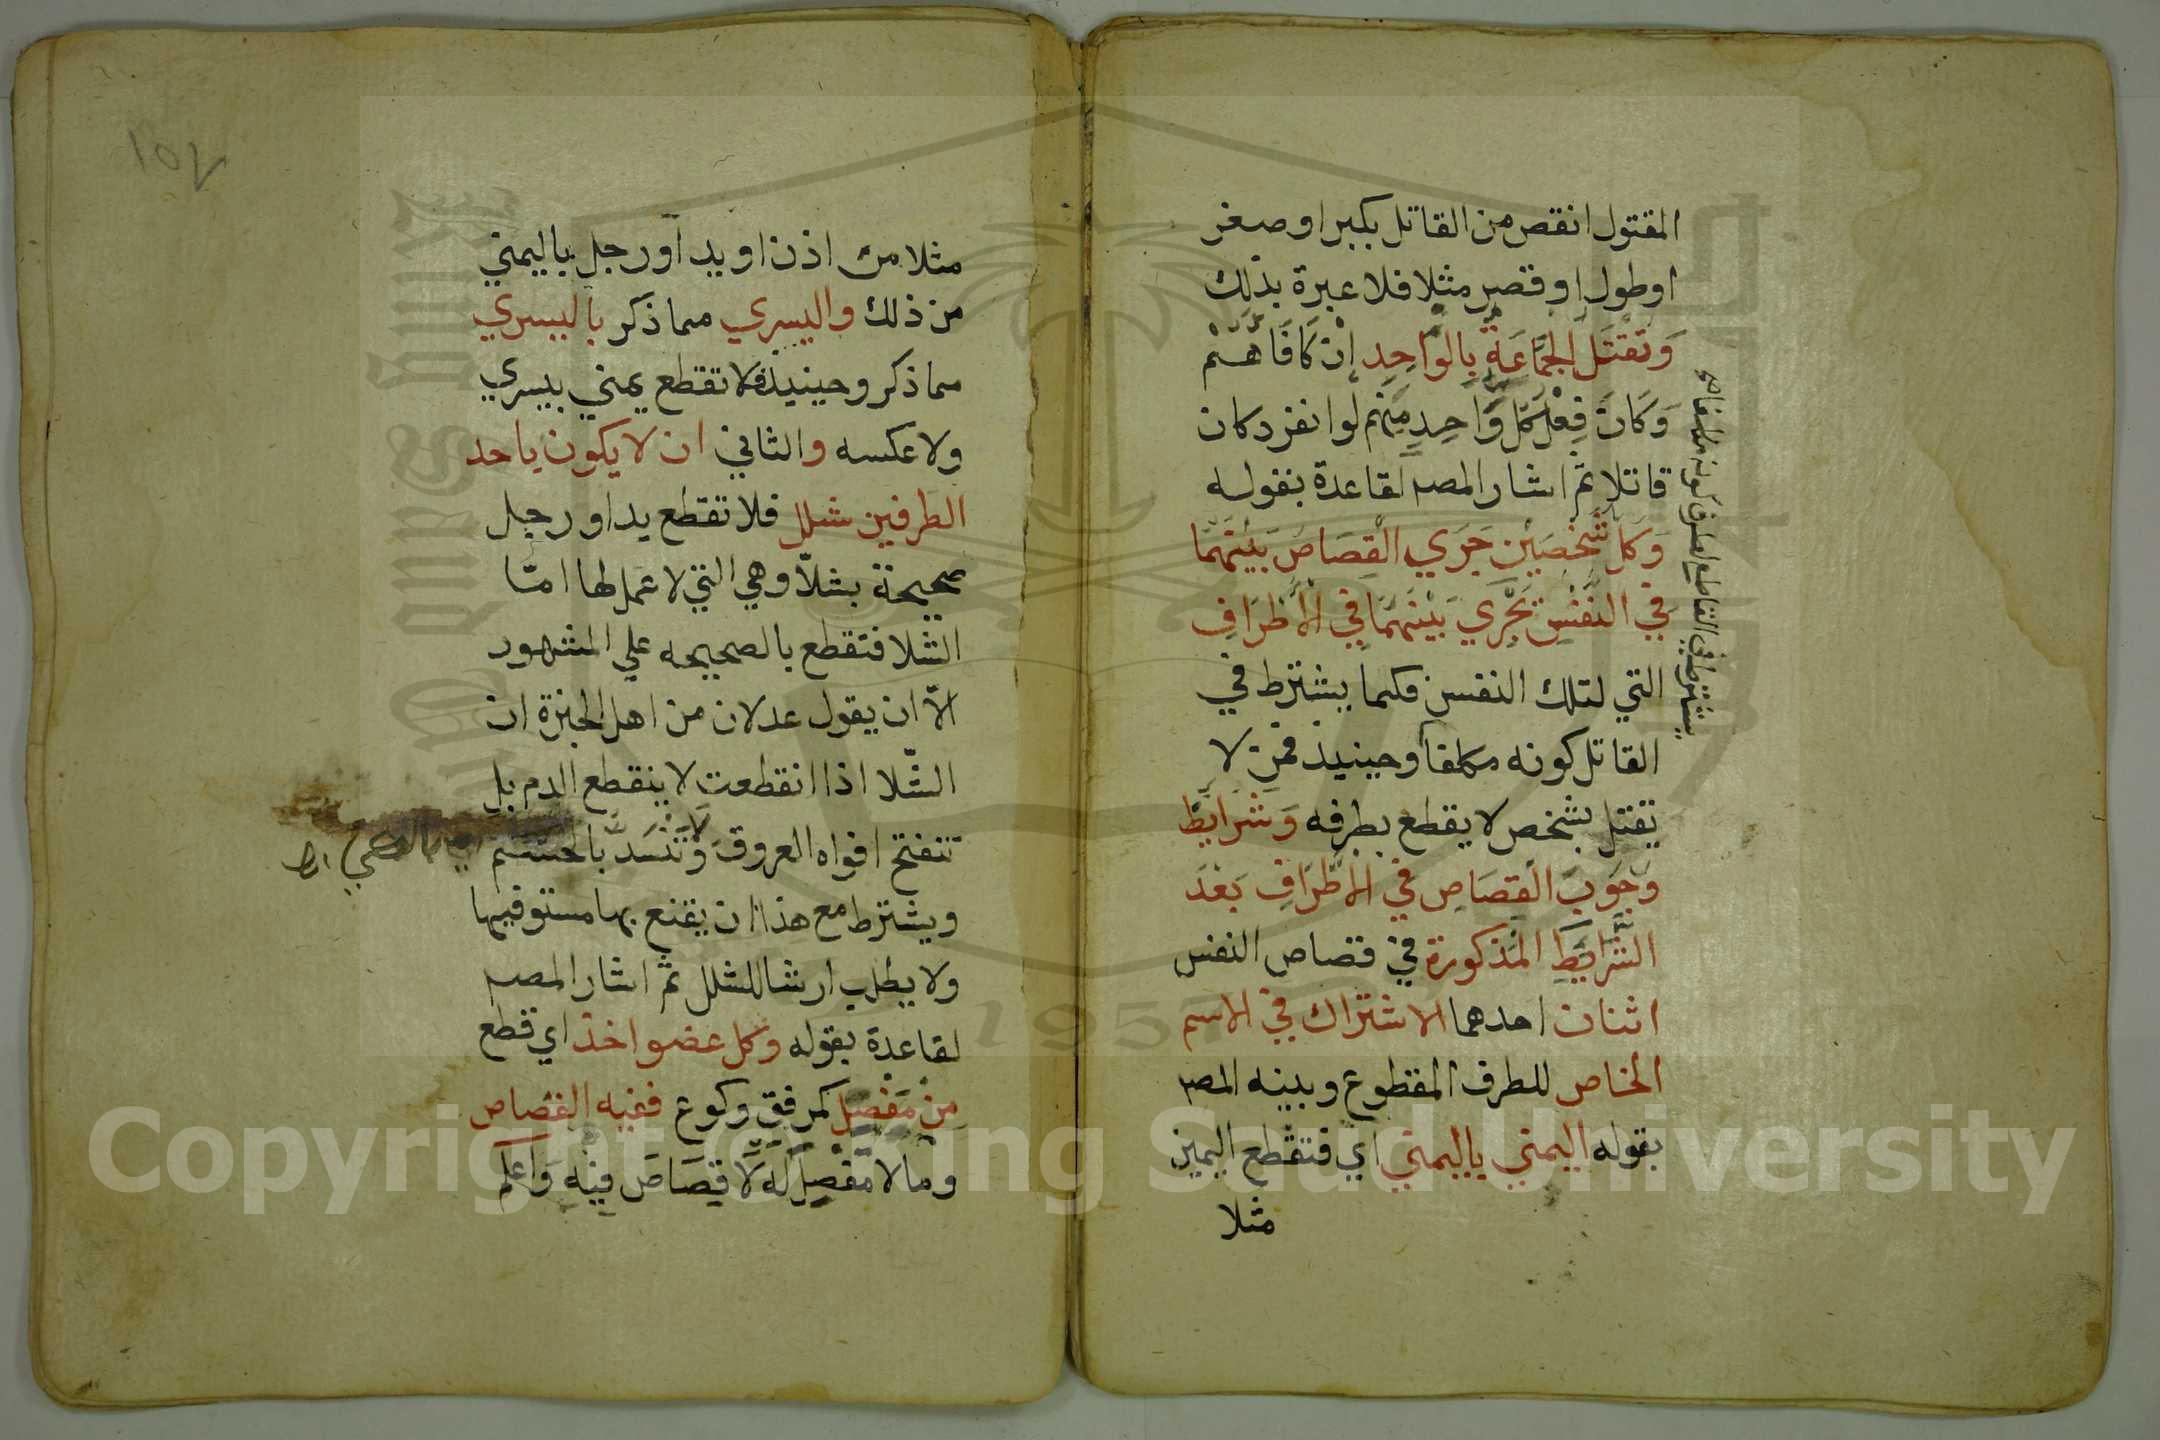 المقتول انقص من القاتل بكبر او صغر
او طول او قصر مثلا فلا عبرة بذلك
وَتقتَل الجَمَاعَة بِالوَاحِدِ إن كَافَاهُمْ
وَكَانَ فِعْل كلّ وَاحِدٍ مِنهم لو انفرد كان
قاتلا ثم اشار المصـ لقاعدة بقوله
وَكل شَخصَيْن جَرَي القِصَاصُ بَيْنَهمَا
فِي النَّفْسِ يَجْرِي بَيْنَهمَا فِي الأطرَافِ
التي لتلك النفس فكما يشترط في
القاتل كونه مكلفا وحينيذ فمن لا
يقتل بشخص لا يقطع بطرفه وَشَرَايط
وَجُوبَ القِصَاصِ فِي الأطرَافِ بَعْدَ
الشَّرَايطِ المَذكورَة في قصاص النفس
اثنان احدهما الاشتراك في الاسم
الخاص للطرف المقطوع وبينه المصـ
بقوله اليمني باليمني اي فتقطع اليمين
مثلا
يشترط في القاطع لطرف كونه مكلفا
١٥٧
مثلا من اذن او يد او رجل باليمني
من ذلك واليسري مما ذكر باليسري
مما ذكر وحينيذ فلا تقطع يمني بيسري
ولا عكسه والثاني ان لا يكون باحد
الطرفين شلل فلا تقطع يد او رجل
صحيحة بشلّا وهي التي لا عمل لها امّا
الشلا فتقطع بالصحيحه علي المشهور
الّا ان يقول عدلان من اهل الخبرة ان
الشّلا اذا انقطعت لا ينقطع الدم بل
تنفتح افواه العروق وَلا تَنْسَدّ بالحسم
ويشترط مع هذا ان يقنع بها مستوفيها
ولا يطلب ارشا للشلل ثم اشار المصـ
لقاعدة بقوله وكل عضو اخذ اي قطع
مِن مَفْصِل كمرفق وكوع ففيه القصاص
وما لا مَفْصِلَ له لا قِصَاصَ فيْهِ وَاعلم